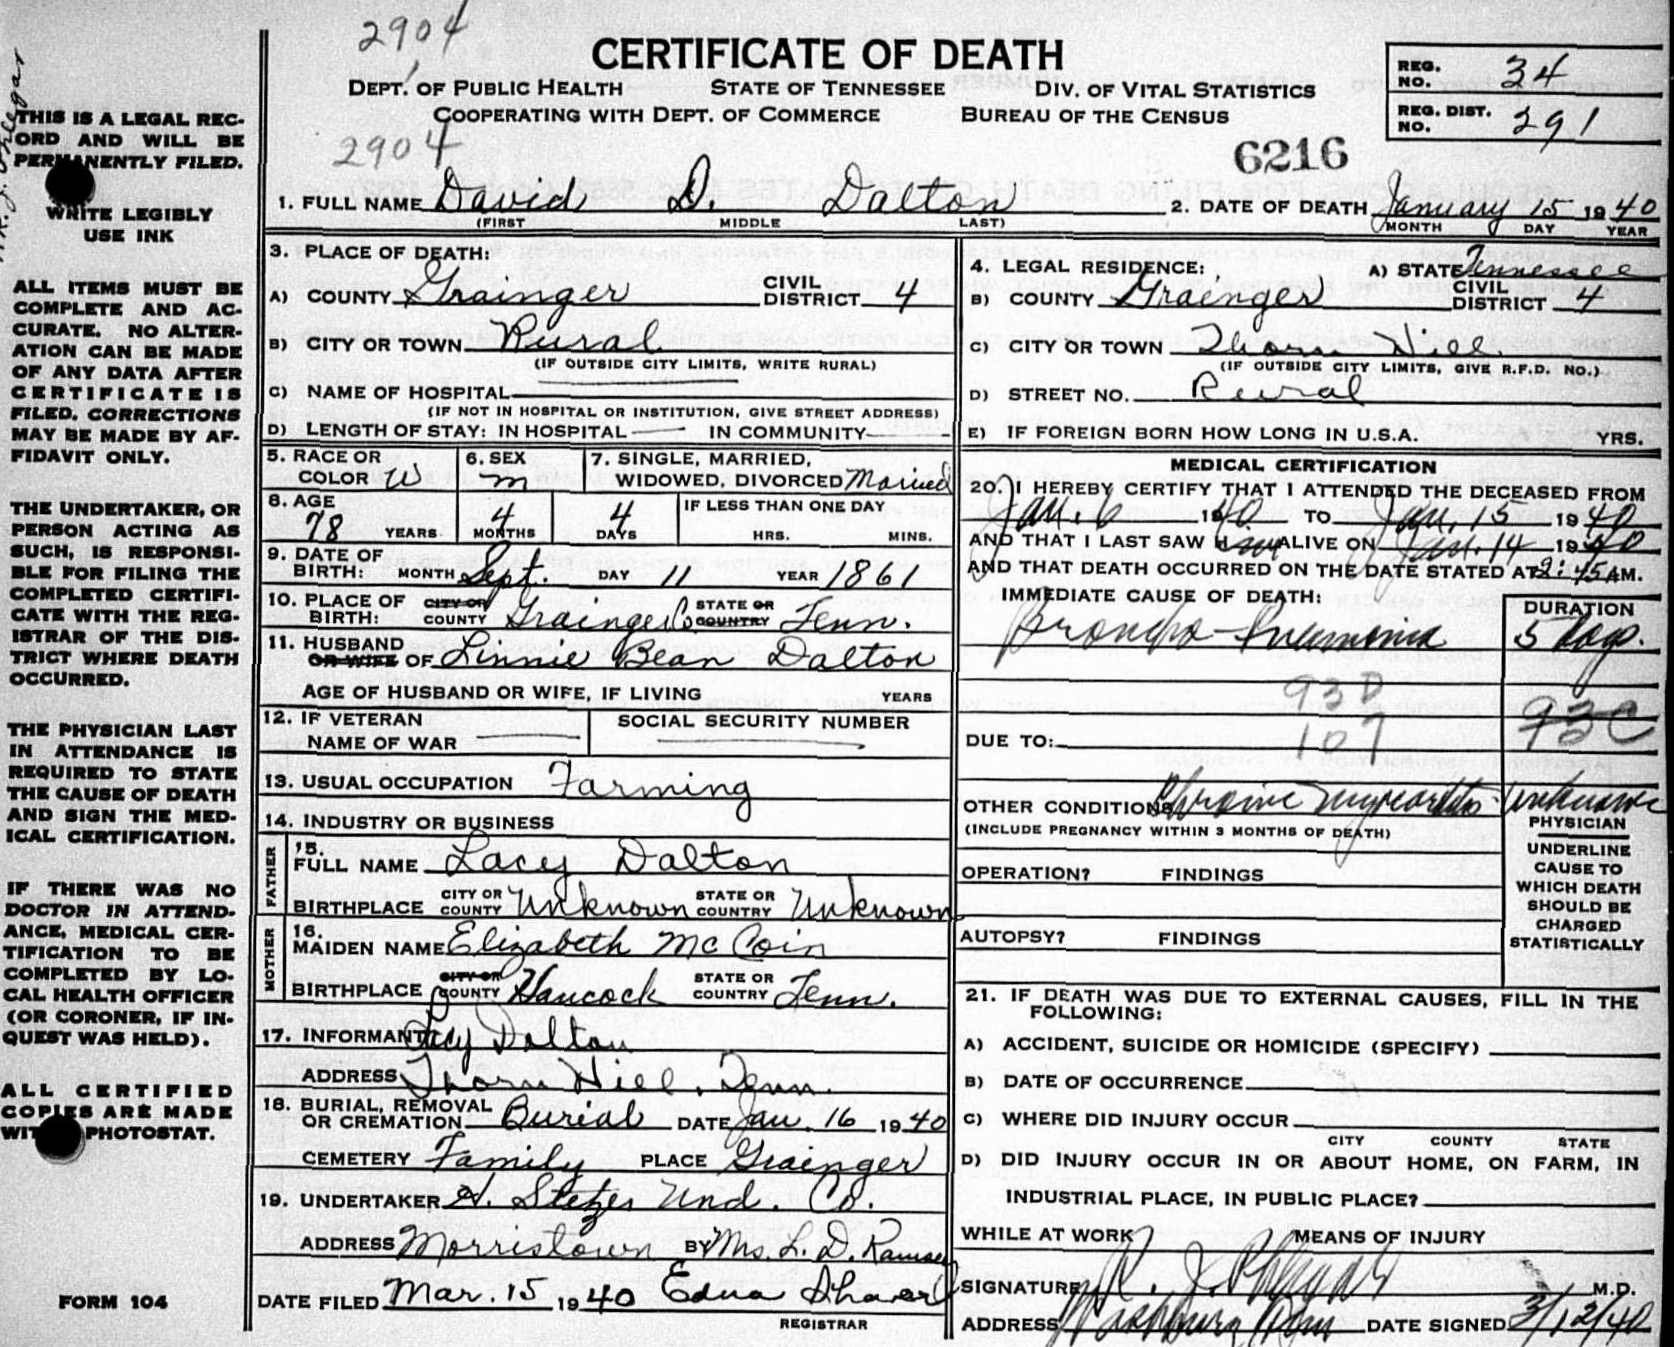 2904
CERTIFICATE OF DEATH
DEPT. OF PUBLIC HEALTH STATE OF TENNESSEE DIV. OF VITAL STATISTICS
COOPERATING WITH DEPT. OF COMMERCE BUREAU OF THE CENSUS
REG. NO. 34
REG. DIST. NO. 291
2904
6216
THIS IS A LEGAL REC-
ORD AND WILL BE
PERMANENTLY FILED.
WRITE LEGIBLY
USE INK
ALL ITEMS MUST BE
COMPLETE AND AC-
CURATE. NO ALTER-
ATION CAN BE MADE
OF ANY DATA AFTER
CERTIFICATE IS
FILED. CORRECTIONS
MAY BE MADE BY AF-
FIDAVIT ONLY.
THE UNDERTAKER, OR
PERSON ACTING AS
SUCH, IS RESPONSI-
BLE FOR FILING THE
COMPLETED CERTIFI-
CATE WITH THE REG-
ISTRAR OF THE DIS-
TRICT WHERE DEATH
OCCURRED.
THE PHYSICIAN LAST
IN ATTENDANCE IS
REQUIRED TO STATE
THE CAUSE OF DEATH
AND SIGN THE MED-
ICAL CERTIFICATION.
IF THERE WAS NO
DOCTOR IN ATTEND-
ANCE, MEDICAL CER-
TIFICATION TO BE
COMPLETED BY LO-
CAL HEALTH OFFICER
(OR CORONER, IF IN-
QUEST WAS HELD).
ALL CERTIFIED
COPIES ARE MADE
WITH PHOTOSTAT.
FORM 104
1. FULL NAME David D. Dalton
(FIRST MIDDLE LAST)
2. DATE OF DEATH January 15 1940
MONTH DAY YEAR
3. PLACE OF DEATH:
A) COUNTY Grainger CIVIL DISTRICT 4
B) CITY OR TOWN Rural
(IF OUTSIDE CITY LIMITS, WRITE RURAL)
C) NAME OF HOSPITAL
(IF NOT IN HOSPITAL OR INSTITUTION, GIVE STREET ADDRESS)
D) LENGTH OF STAY: IN HOSPITAL IN COMMUNITY
4. LEGAL RESIDENCE: A) STATE Tennessee
B) COUNTY Grainger CIVIL DISTRICT 4
C) CITY OR TOWN Thorn Hill
(IF OUTSIDE CITY LIMITS, GIVE R.F.D. NO.)
D) STREET NO. Rural
E) IF FOREIGN BORN HOW LONG IN U.S.A. YRS.
5. RACE OR COLOR W 6. SEX m 7. SINGLE, MARRIED, WIDOWED, DIVORCED Married
8. AGE 78 YEARS 4 MONTHS 4 DAYS IF LESS THAN ONE DAY HRS. MINS.
9. DATE OF BIRTH: MONTH Sept. DAY 11 YEAR 1861
10. PLACE OF BIRTH: CITY OR COUNTY Grainger Co STATE OR COUNTRY Tenn.
11. HUSBAND OR WIFE OF Linnie Bean Dalton
AGE OF HUSBAND OR WIFE, IF LIVING YEARS
12. IF VETERAN NAME OF WAR SOCIAL SECURITY NUMBER
13. USUAL OCCUPATION Farming
14. INDUSTRY OR BUSINESS
FATHER
15. FULL NAME Lacey Dalton
BIRTHPLACE CITY OR COUNTY Unknown STATE OR COUNTRY Unknown
MOTHER
16. MAIDEN NAME Elizabeth McCoin
BIRTHPLACE CITY OR COUNTY Hancock STATE OR COUNTRY Tenn.
17. INFORMANT Lacy Dalton
ADDRESS Thorn Hill, Tenn.
18. BURIAL, REMOVAL OR CREMATION Burial DATE Jan. 16 1940
CEMETERY Family PLACE Grainger
19. UNDERTAKER H. Stetzer Und. Co.
ADDRESS Morristown BY Mrs. L. D. Ramsey
DATE FILED Mar. 15 1940 Edna
REGISTRAR
MEDICAL CERTIFICATION
20. I HEREBY CERTIFY THAT I ATTENDED THE DECEASED FROM
Jan. 6 1940 TO Jan. 15 1940
AND THAT I LAST SAW him ALIVE ON Jan. 14 1940
AND THAT DEATH OCCURRED ON THE DATE STATED AT 2:45 AM.
IMMEDIATE CAUSE OF DEATH: DURATION
Broncho-Pneumonia 5 days.
93D 93C
DUE TO: 107
OTHER CONDITIONS Chronic myocarditis Unknown
(INCLUDE PREGNANCY WITHIN 3 MONTHS OF DEATH)
PHYSICIAN
UNDERLINE
CAUSE TO
WHICH DEATH
SHOULD BE
CHARGED
STATISTICALLY
OPERATION? FINDINGS
AUTOPSY? FINDINGS
21. IF DEATH WAS DUE TO EXTERNAL CAUSES, FILL IN THE
FOLLOWING:
A) ACCIDENT, SUICIDE OR HOMICIDE (SPECIFY)
B) DATE OF OCCURRENCE
C) WHERE DID INJURY OCCUR
CITY COUNTY STATE
D) DID INJURY OCCUR IN OR ABOUT HOME, ON FARM, IN
INDUSTRIAL PLACE, IN PUBLIC PLACE?
WHILE AT WORK MEANS OF INJURY
SIGNATURE R. J. M.D.
ADDRESS Washburn Tenn DATE SIGNED 3/12/40